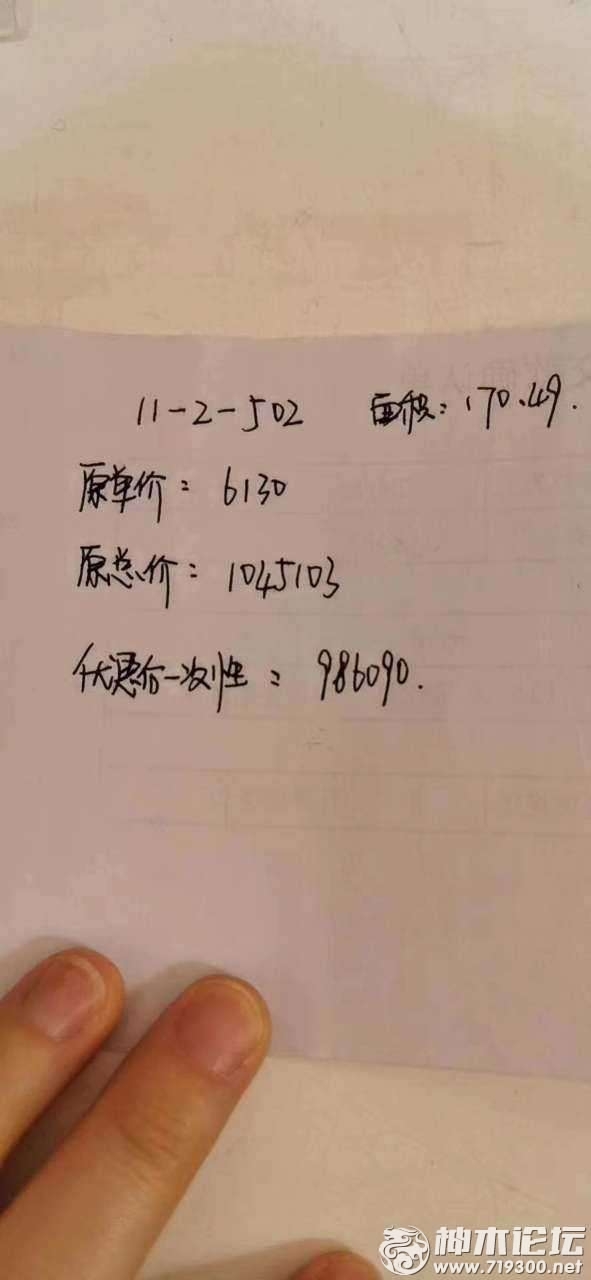 11-2-502 面积：170.49.
原单价：6130
原总价：1045103
优惠价一次性：986090.
神木论坛
www.719300.net